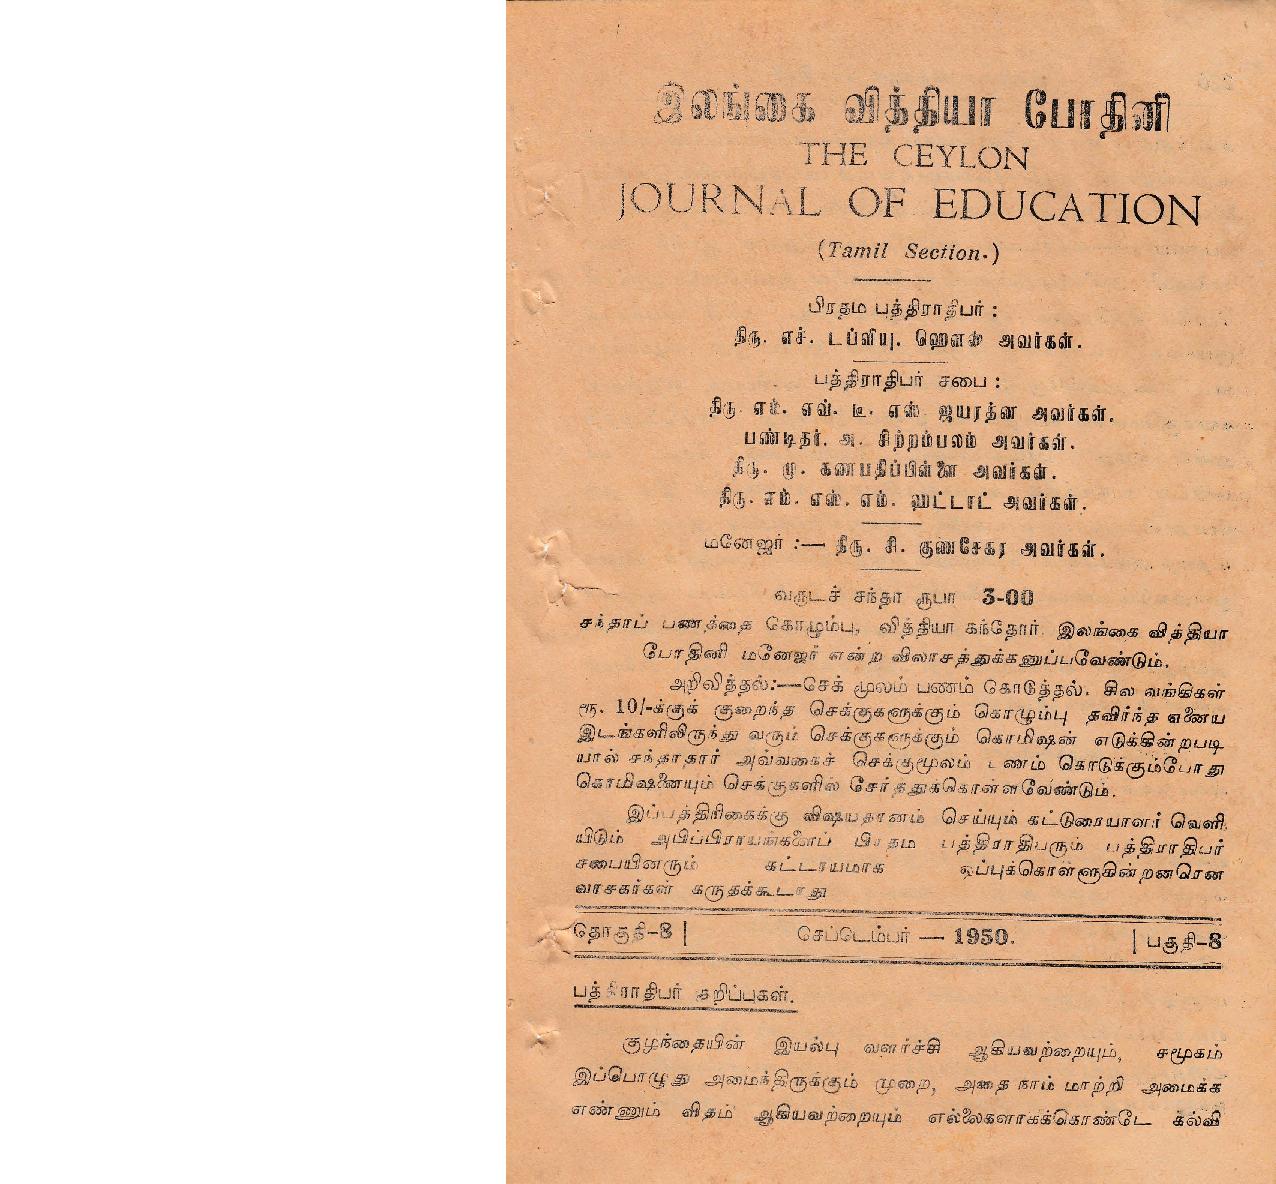 இலங்கை வித்தியா போதினி
THE CEYLON
JOURNAL OF EDUCATION
(Tamil Section.)
பிரதம பத்திராதிபர் :
திரு. எச். டப்ளியு. ஹௌஸ் அவர்கள்.
பத்திராதிபர் சபை :
திரு எம். எவ். டீ. எஸ் ஜயரத்ன அவர்கள்.
பண்டிதர். அ. சிற்றம்பலம் அவர்கள்.
திரு. மு. கணபதிப்பிள்ளை அவர்கள்.
திரு. எம். எஸ். எம். ஹட்டாட் அவர்கள்.
மனேஜர் :— திரு. சி. குணசேகர அவர்கள்.
வருடச் சந்தா ரூபா 3-00
சந்தாப் பணத்தை கொழும்பு, வித்தியா கந்தோர். இலங்கை வித்தியா
போதினி மனேஜர் என்ற விலாசத்துக்கனுப்பவேண்டும்.
அறிவித்தல்:—செக் மூலம் பணம் கொடுத்தல். சில வங்கிகள்
ரூ. 10/-க்குக் குறைந்த செக்குகளுக்கும் கொழும்பு தவிர்ந்த ஏனைய
இடங்களிலிருந்து வரும் செக்குகளுக்கும் கொமிஷன் எடுக்கின்றபடி
யால் சந்தாதார் அவ்வகைச் செக்குமூலம் பணம் கொடுக்கும்போது
கொமிஷனையும் செக்குகளில் சேர்த்துக்கொள்ளவேண்டும்.
இப்பத்திரிகைக்கு விஷயதானம் செய்யும் கட்டுரையாளர் வெளி
யிடும் அபிப்பிராயங்களைப் பிரதம பத்திராதிபரும் பத்திராதிபர்
சபையினரும் கட்டாயமாக ஒப்புக்கொள்ளுகின்றனரென
வாசகர்கள் கருதக்கூடாது
தொகுதி-8 | செப்டெம்பர் — 1950. | பகுதி-8
பத்திராதிபர் குறிப்புகள்.
குழந்தையின் இயல்பு வளர்ச்சி ஆகியவற்றையும், சமூகம்
இப்பொழுது அமைந்திருக்கும் முறை, அதை நாம் மாற்றி அமைக்க
எண்ணும் விதம் ஆகியவற்றையும் எல்லைகளாகக்கொண்டே கல்வி